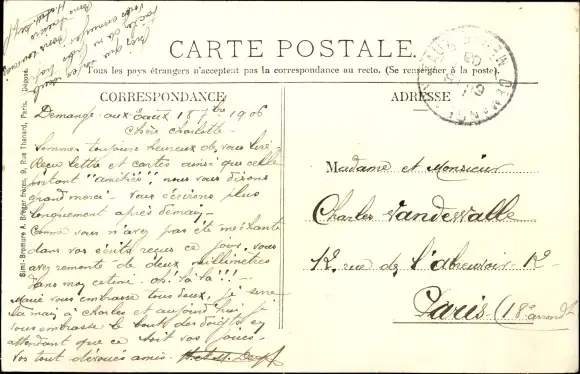 CARTE POSTALE.
Tous les pays étrangers n'acceptent pas la correspondance au recto. (Se renseigner à la poste.)
CORRESPONDANCE
Demange-aux-Eaux 18 7bre 1906
Chère Charlotte -
Sommes toujours heureux de vous lire.
Reçu lettre et cartes ainsi que celle
portant "amitiés", nous vous disons
grand merci. Vous écrirons plus
longuement après demain -
Comme vous n'avez pas été méchante
dans vos écrits reçus ce jour, vous
avez remonté de deux millimètres
dans mon estime. Oh! là là!!! -
Marie vous embrasse tous deux, je serre
la main à Charles et aujourd'hui je
vous embrasse le bout des doigts en
attendant que ce soit vos joues.
Vos tout dévoués amis.
ADRESSE
Madame et Monsieur
Charles Vandewalle
12. rue de l'abreuvoir - 12
Paris (18e arrondt
Simi-Bromure A. Breger frères, 9, Rue Thénard, Paris.